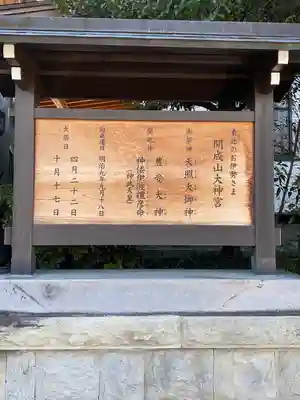 東北のお伊勢さま
開成山大神宮
御祭神 天照大御神
豊受大神
神倭伊波禮彦命
(神武天皇)
御鎮座日 明治九年九月十八日
大祭日 四月二十二日
十月十七日